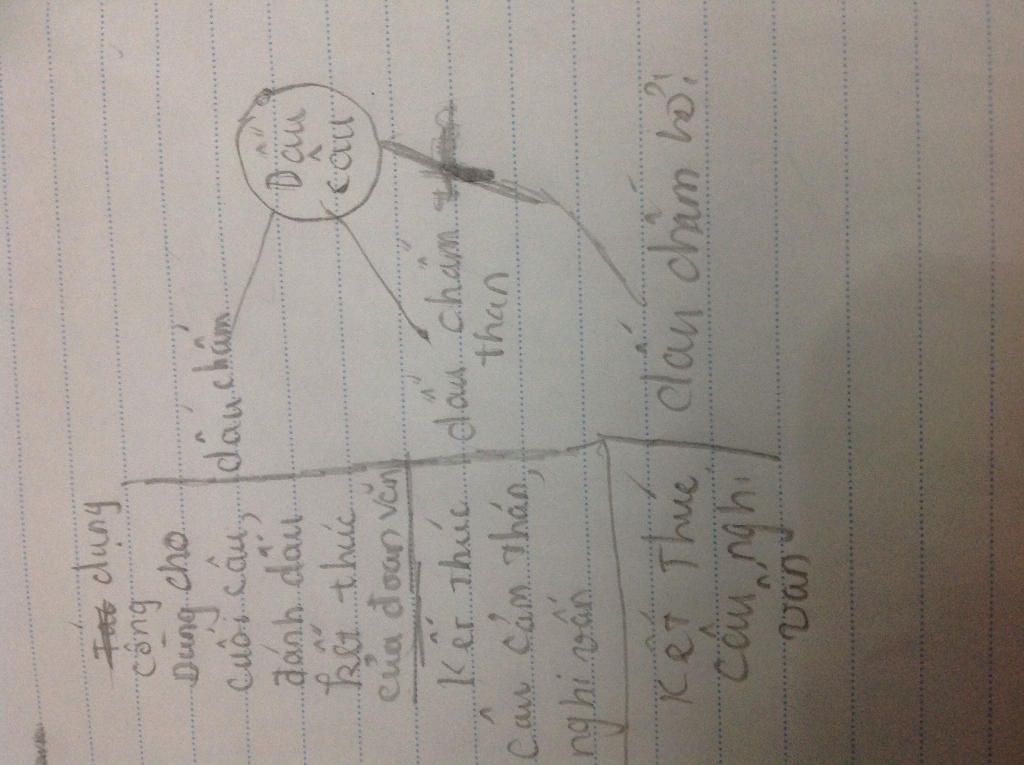 Dấu
câu
dấu chấm
dấu chấm
than
dấu chấm hỏi
công dụng
Dùng cho
cuối câu,
đánh dấu
kết thúc
của đoạn văn
Kết thúc
Câu cảm thán,
nghi vấn
Kết Thúc
câu nghi
vấn